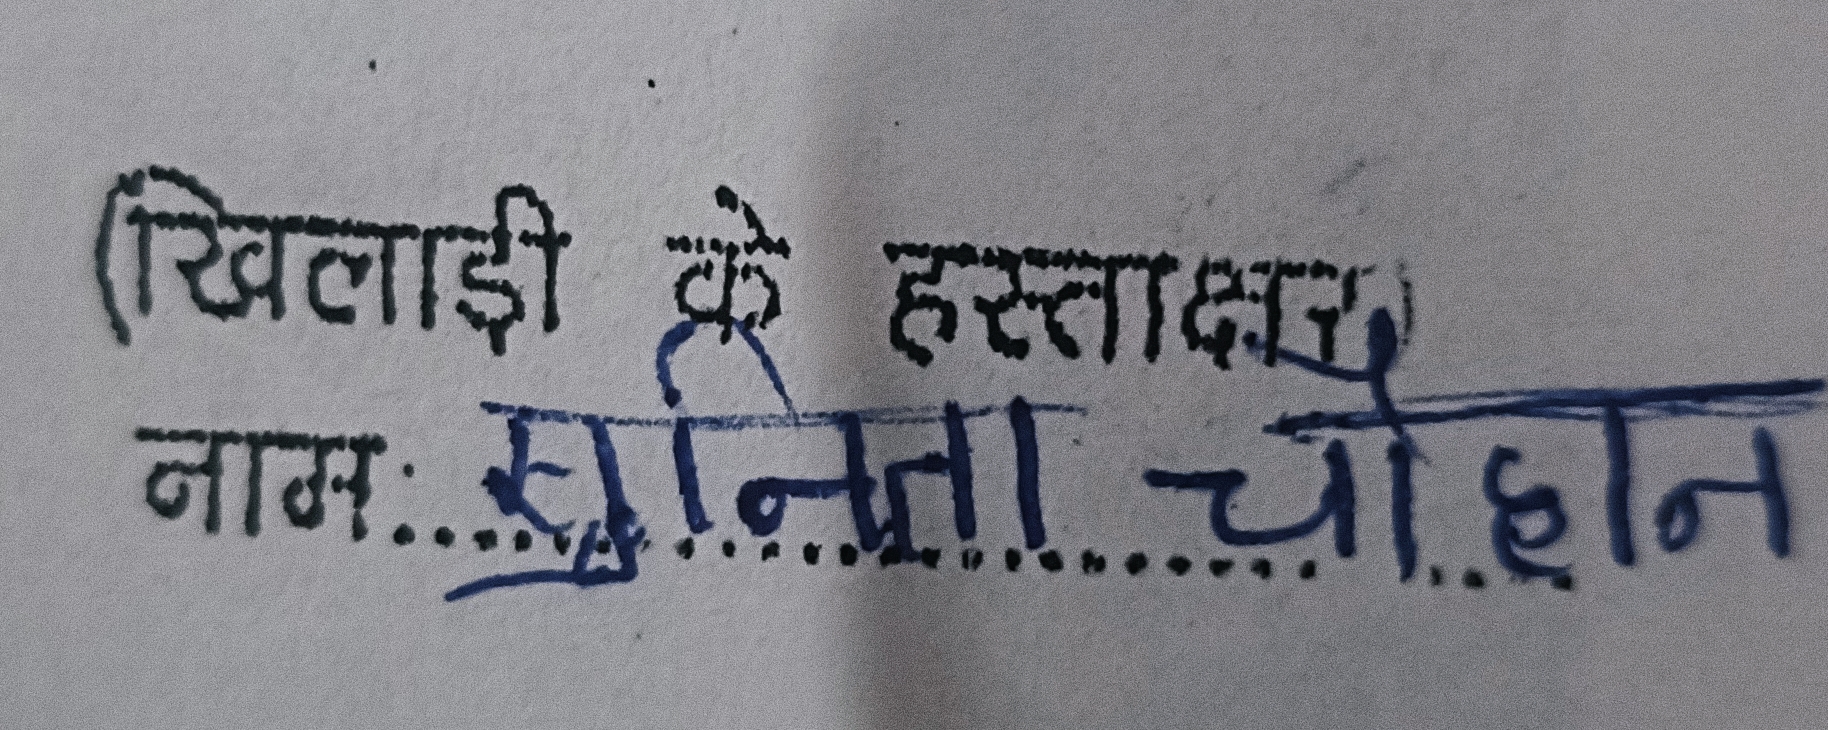 (खिलाड़ी के हस्ताक्षर)
नाम: सुनिता चौहान